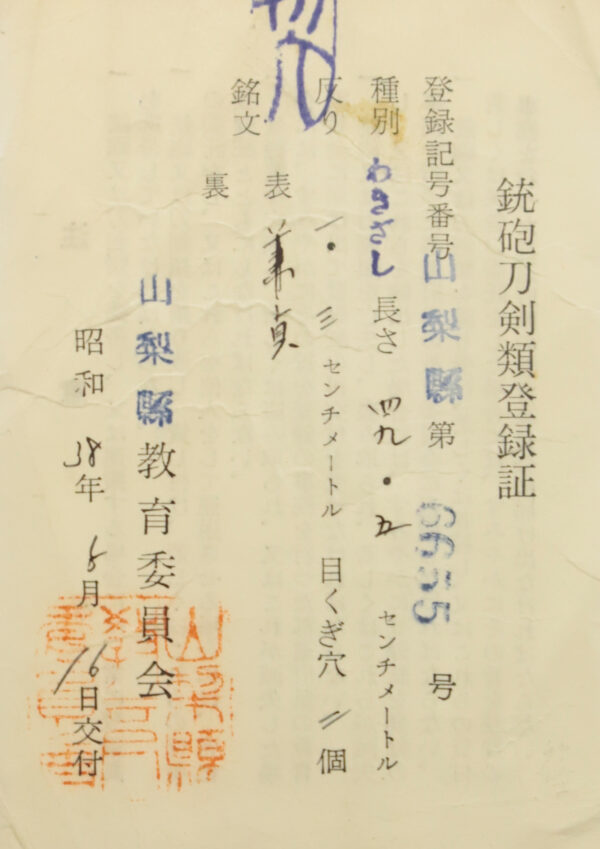 銃砲刀剣類登録証
登録記号番号 山梨縣 第 6655 号
種別 わきざし 長さ 四九・五 センチメートル
反り 一・三 センチメートル 目くぎ穴 二 個
銘文 表 兼貞
裏
山梨縣教育委員会
昭和 38年 5月 16日交付